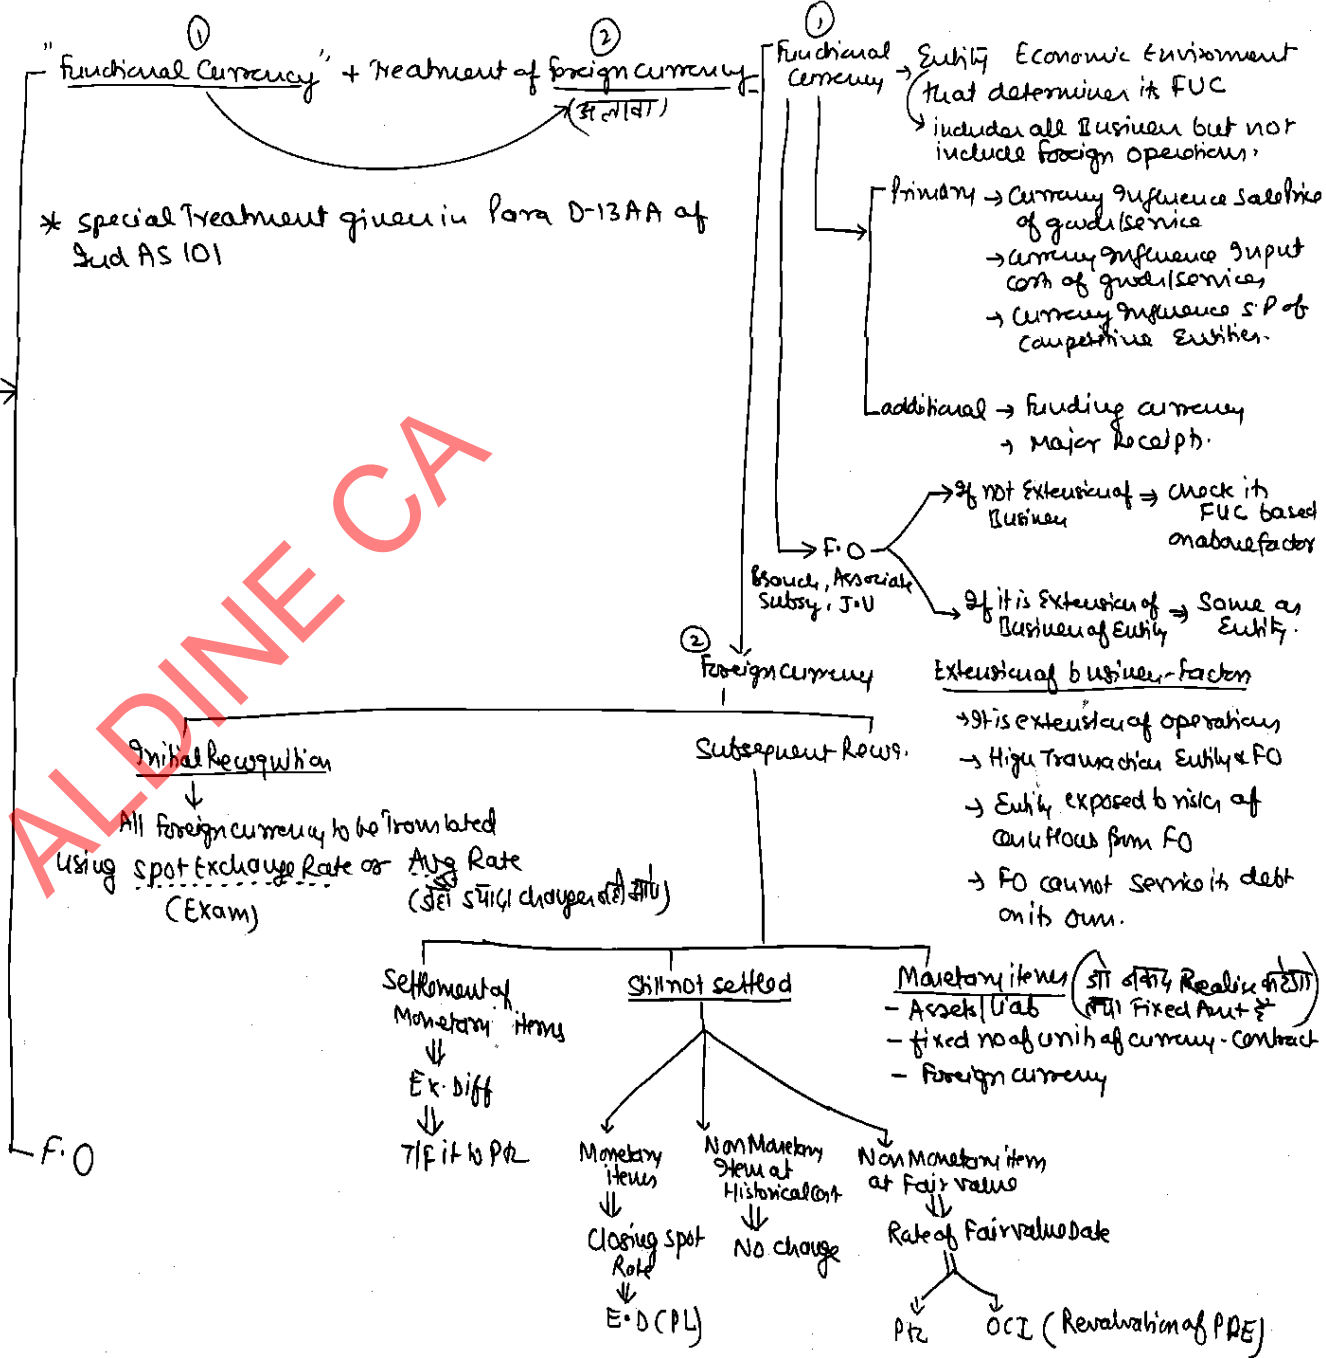 ①
"Functional Currency" + Treatment of foreign currency
②
(अलावा)
* Special Treatment given in Para D-13AA of
Ind AS 101
F.O
①
Functional
Currency
→ Entity Economic Environment
that determines its FUC
→ includes all Business but not
include foreign operations.
Primary → Currency Influence Sale Price
of goods/service
→ Currency Influence Input
cost of goods/services
→ Currency Influence S.P of
Competitive Entities.
additional → Funding currency
→ Major Receipts.
F.O
Branch, Associate
Subsy, J.V
→ If not Extension of
Business
⇒ Check its
FUC based
on above factor
→ If it is Extension of
Business of Entity
⇒ Same as
Entity.
Extension of business-factors
→ It is extension of operations
→ High Transaction Entity & FO
→ Entity exposed to risks of
from FO
→ FO cannot service its debt
on its own.
②
Foreign currency
Initial Recognition
↓
All Foreign currency to be Translated
using Spot Exchange Rate or Avg Rate
(Exam)
(जहाँ ज्यादा changes नहीं आए)
Subsequent Recog.
Settlement of
Monetary items
⇓
Ex. Diff
⇓
T/F it to P&L
Still not settled
Monetary
items
⇓
Closing spot
Rate
⇓
E.D (PL)
Non Monetary
Item at
Historical Cost
⇓
No change
Non Monetary item
at Fair value
⇓
Rate of Fair value Date
P&L
OCI (Revaluation of PPE)
Monetary items
- Assets/Liab
- fixed no of units of currency - contract
- Foreign currency
(जो Realise
Fixed Amt है)
ALDINE CA